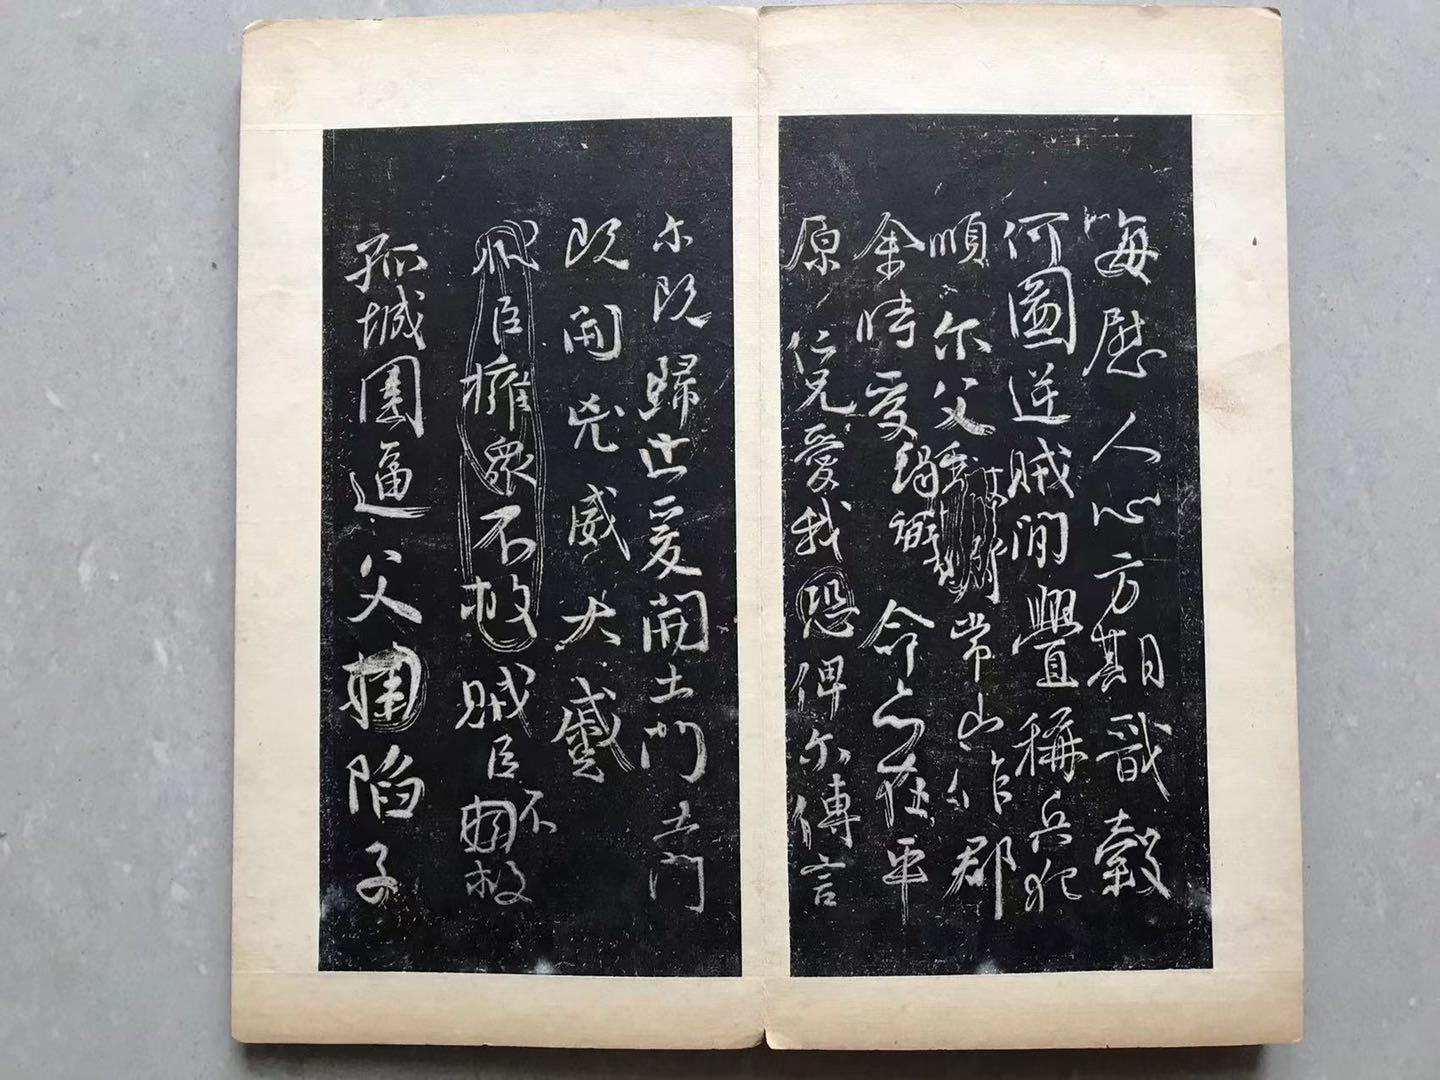 每慰人心方期戩穀
何圖逆賊閒釁稱兵犯
順尔父竭誠常山作郡
余時受命亦在平
原仁兄愛我恐俾尔傳言
尔既歸止爰開土門土門
既開凶威大蹙
臣擁衆不救賊臣不救
孤城圍逼父陷子